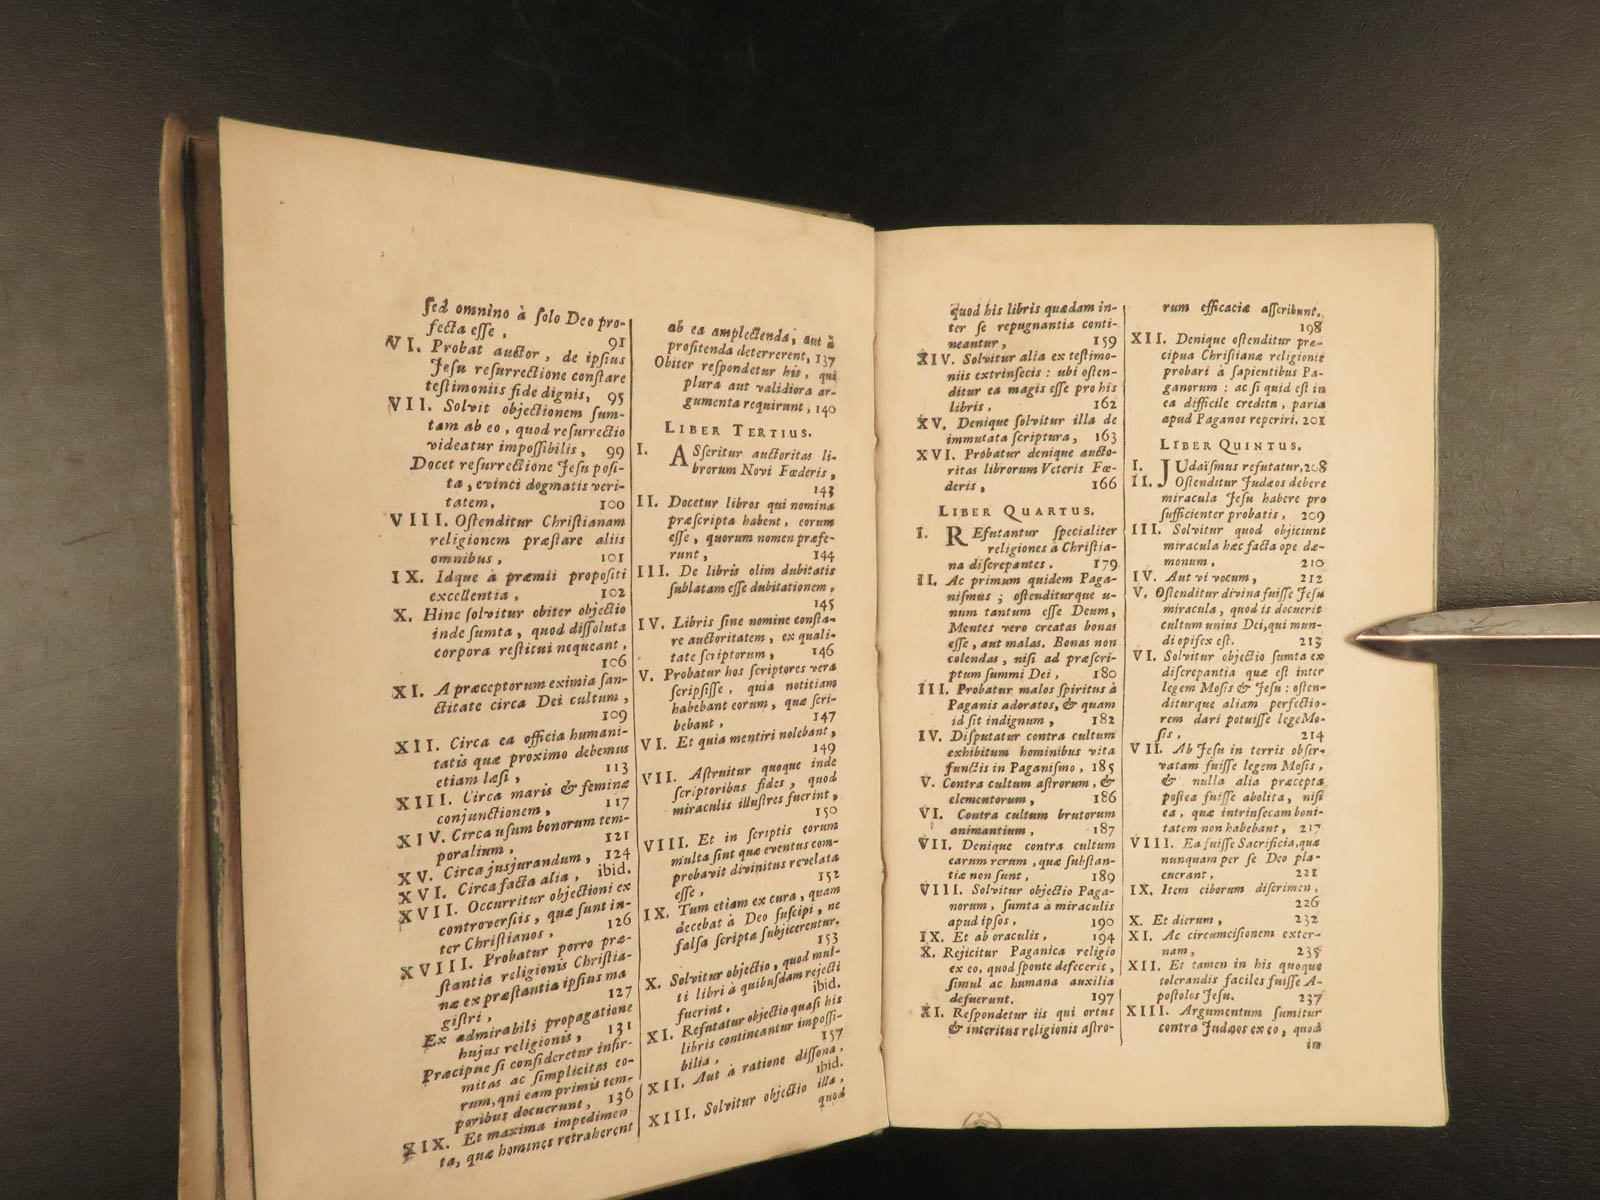 sed omnino à solo Deo pro-
fecta esse, 91
VI. Probat auctor, de ipsius
Jesu resurrectione constare
testimoniis fide dignis, 95
VII. Solvit objectionem sum-
tam ab eo, quod resurrectio
videatur impossibilis, 99
Docet resurrectione Jesu posi-
ta, evinci dogmatis veri-
tatem, 100
VIII. Ostenditur Christianam
religionem præstare aliis
omnibus, 101
IX. Idque à præmii propositi
excellentia, 102
X. Hinc solvitur obiter objectio
inde sumta, quod dissoluta
corpora restitui nequeant,
106
XI. A præceptorum eximia san-
ctitate circa Dei cultum,
109
XII. Circa ea officia humani-
tatis quæ proximo debemus
etiam læsi, 113
XIII. Circa maris & feminæ
conjunctionem, 117
XIV. Circa usum bonorum tem-
poralium, 121
XV. Circa jusjurandum, 124
XVI. Circa facta alia, ibid.
XVII. Occurritur objectioni ex
controversiis, quæ sunt in-
ter Christianos, 126
XVIII. Probatur porro præ-
stantia religionis Christia-
næ ex præstantia ipsius ma
gistri, 127
Ex admirabili propagatione
hujus religionis, 131
Præcipue si consideretur infir-
mitas ac simplicitas eo-
rum, qui eam primis tem-
poribus docuerunt, 136
XIX. Et maxima impedimen
ta, quæ homines retraherent
ab ea amplectenda, aut à
profitenda deterrerent, 137
Obiter respondetur his, qui
plura aut validiora ar-
gumenta requirunt, 140
LIBER TERTIUS.
I. ASseritur auctoritas li-
brorum Novi Fœderis,
143
II. Docetur libros qui nomina
præscripta habent, eorum
esse, quorum nomen præfe-
runt, 144
III. De libris olim dubitatis
sublatam esse dubitationem,
145
IV. Libris sine nomine consta-
re auctoritatem, ex quali-
tate scriptorum, 146
V. Probatur hos scriptores vera
scripsisse, quia notitiam
habebant eorum, quæ scri-
bebant, 147
VI. Et quia mentiri nolebant,
149
VII. Astruitur quoque inde
scriptoribus fides, quod
miraculis illustres fuerint,
150
VIII. Et in scriptis eorum
multa sint quæ eventus com-
probavit divinitus revelata
esse, 152
IX. Tum etiam ex cura, quam
decebat à Deo suscipi, ne
falsa scripta subjicerentur.
153
X. Solvitur objectio, quod mul-
ti libri à quibusdam rejecti
fuerint, ibid.
XI. Refutatur objectio quasi his
libris contineantur impossi-
bilia, 157
XII. Aut à ratione dissona,
ibid.
XIII. Solvitur objectio illa,
quod
quod his libris quædam in-
ter se repugnantia conti-
neantur, 159
XIV. Solvitur alia ex testimo-
niis extrinsecis: ubi osten-
ditur ea magis esse pro his
libris, 162
XV. Denique solvitur illa de
immutata scriptura, 163
XVI. Probatur denique aucto-
ritas librorum Veteris Fœ-
deris, 166
LIBER QUARTUS.
I. REfutantur specialiter
religiones à Christia-
na discrepantes. 179
II. Ac primum quidem Paga-
nismus; ostenditurque u-
num tantum esse Deum,
Mentes vero creatas bonas
esse, aut malas. Bonas non
colendas, nisi ad præscri-
ptum summi Dei, 180
III. Probatur malos spiritus à
Paganis adoratos, & quam
id sit indignum, 182
IV. Disputatur contra cultum
exhibitum hominibus vita
functis in Paganismo, 185
V. Contra cultum astrorum, &
elementorum, 186
VI. Contra cultum brutorum
animantium, 187
VII. Denique contra cultum
earum rerum, quæ substan-
tiæ non sunt, 189
VIII. Solvitur objectio Paga-
norum, sumta à miraculis
apud ipsos, 190
IX. Et ab oraculis, 194
X. Rejicitur Paganica religio
ex eo, quod sponte defecerit,
simul ac humana auxilia
defuerunt. 197
XI. Respondetur iis qui ortus
& interitus religionis astro-
rum efficaciæ asscribunt,
198
XII. Denique ostenditur præ-
cipua Christianæ religionis
probari à sapientibus Pa-
ganorum: ac si quid est in
ea difficile creditu, paria
apud Paganos reperiri. 201
LIBER QUINTUS.
I. JUdaismus refutatur, 208
II. Ostenditur Judæos debere
miracula Jesu habere pro
sufficienter probatis, 209
III. Solvitur quod objiciunt
miracula hæc facta ope dæ-
monum, 210
IV. Aut vi vocum, 212
V. Ostenditur divina fuisse Jesu
miracula, quod is docuerit
cultum unius Dei, qui mun-
di opifex est. 213
VI. Solvitur objectio sumta ex
discrepantia quæ est inter
legem Mosis & Jesu: osten-
diturque aliam perfectio-
rem dari potuisse lege Mo-
sis, 214
VII. Ab Jesu in terris obser-
vatam fuisse legem Mosis,
& nulla alia præcepta
postea fuisse abolita, nisi
ea, quæ intrinsecam boni-
tatem non habebant, 217
VIII. Ea fuisse Sacrificia, quæ
nunquam per se Deo pla-
cuerant, 221
IX. Item ciborum discrimen,
226
X. Et dierum, 232
XI. Ac circumcisionem exter-
nam, 235
XII. Et tamen in his quoque
tolerandis faciles fuisse A-
postolos Jesu. 237
XIII. Argumentum sumitur
contra Judæos ex eo, quod
in